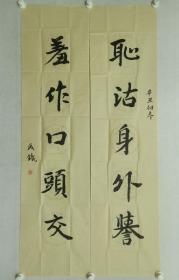 恥沽身外譽
辛丑冬
羞作口頭交